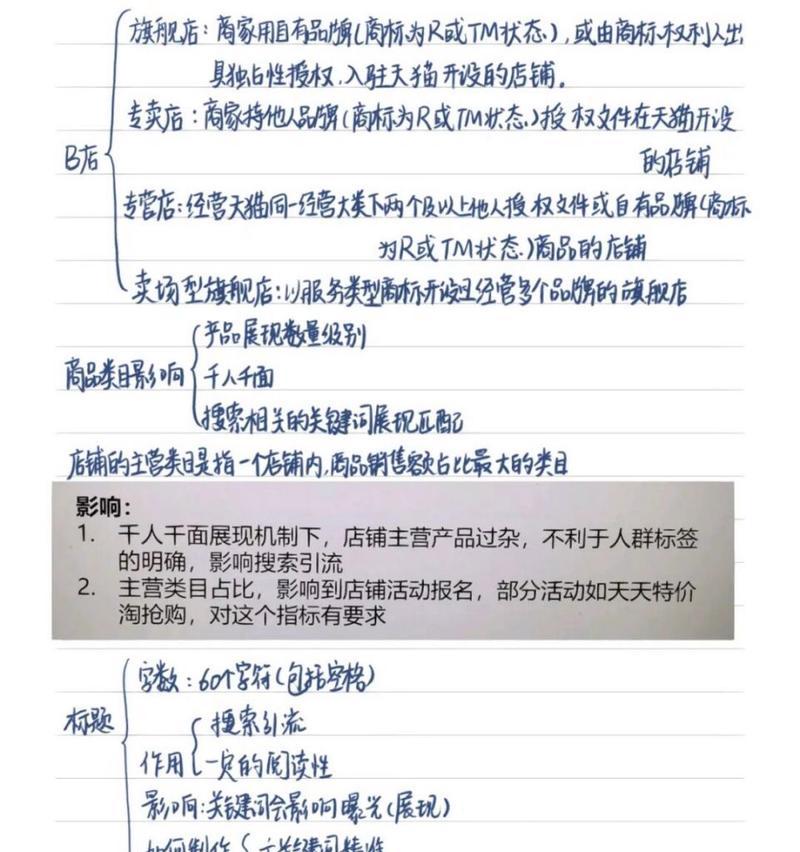 旗舰店：商家用自有品牌(商标为R或TM状态)，或由商标权利人出
具独占性授权，入驻天猫开设的店铺。
专卖店：商家持他人品牌(商标为R或TM状态)授权文件在天猫开设
的店铺
B店
专营店：经营天猫同一经营大类下两个及以上他人授权文件或自有品牌(商标
为R或TM状态)商品的店铺
卖场型旗舰店：以服务类型商标开设且经营多个品牌的旗舰店
产品展现数量级别
商品类目影响
千人千面
搜索相关的关键词展现匹配
店铺的主营类目是指一个店铺内，商品销售额占比最大的类目
影响：
1. 千人千面展现机制下，店铺主营产品过杂，不利于人群标签
的明确，影响搜索引流
2. 主营类目占比，影响到店铺活动报名，部分活动如天天特价
淘抢购，对这个指标有要求
字数：60个字符(包括空格)
标题
搜索引流
作用
一定的阅读性
影响：关键词会影响曝光(展现)